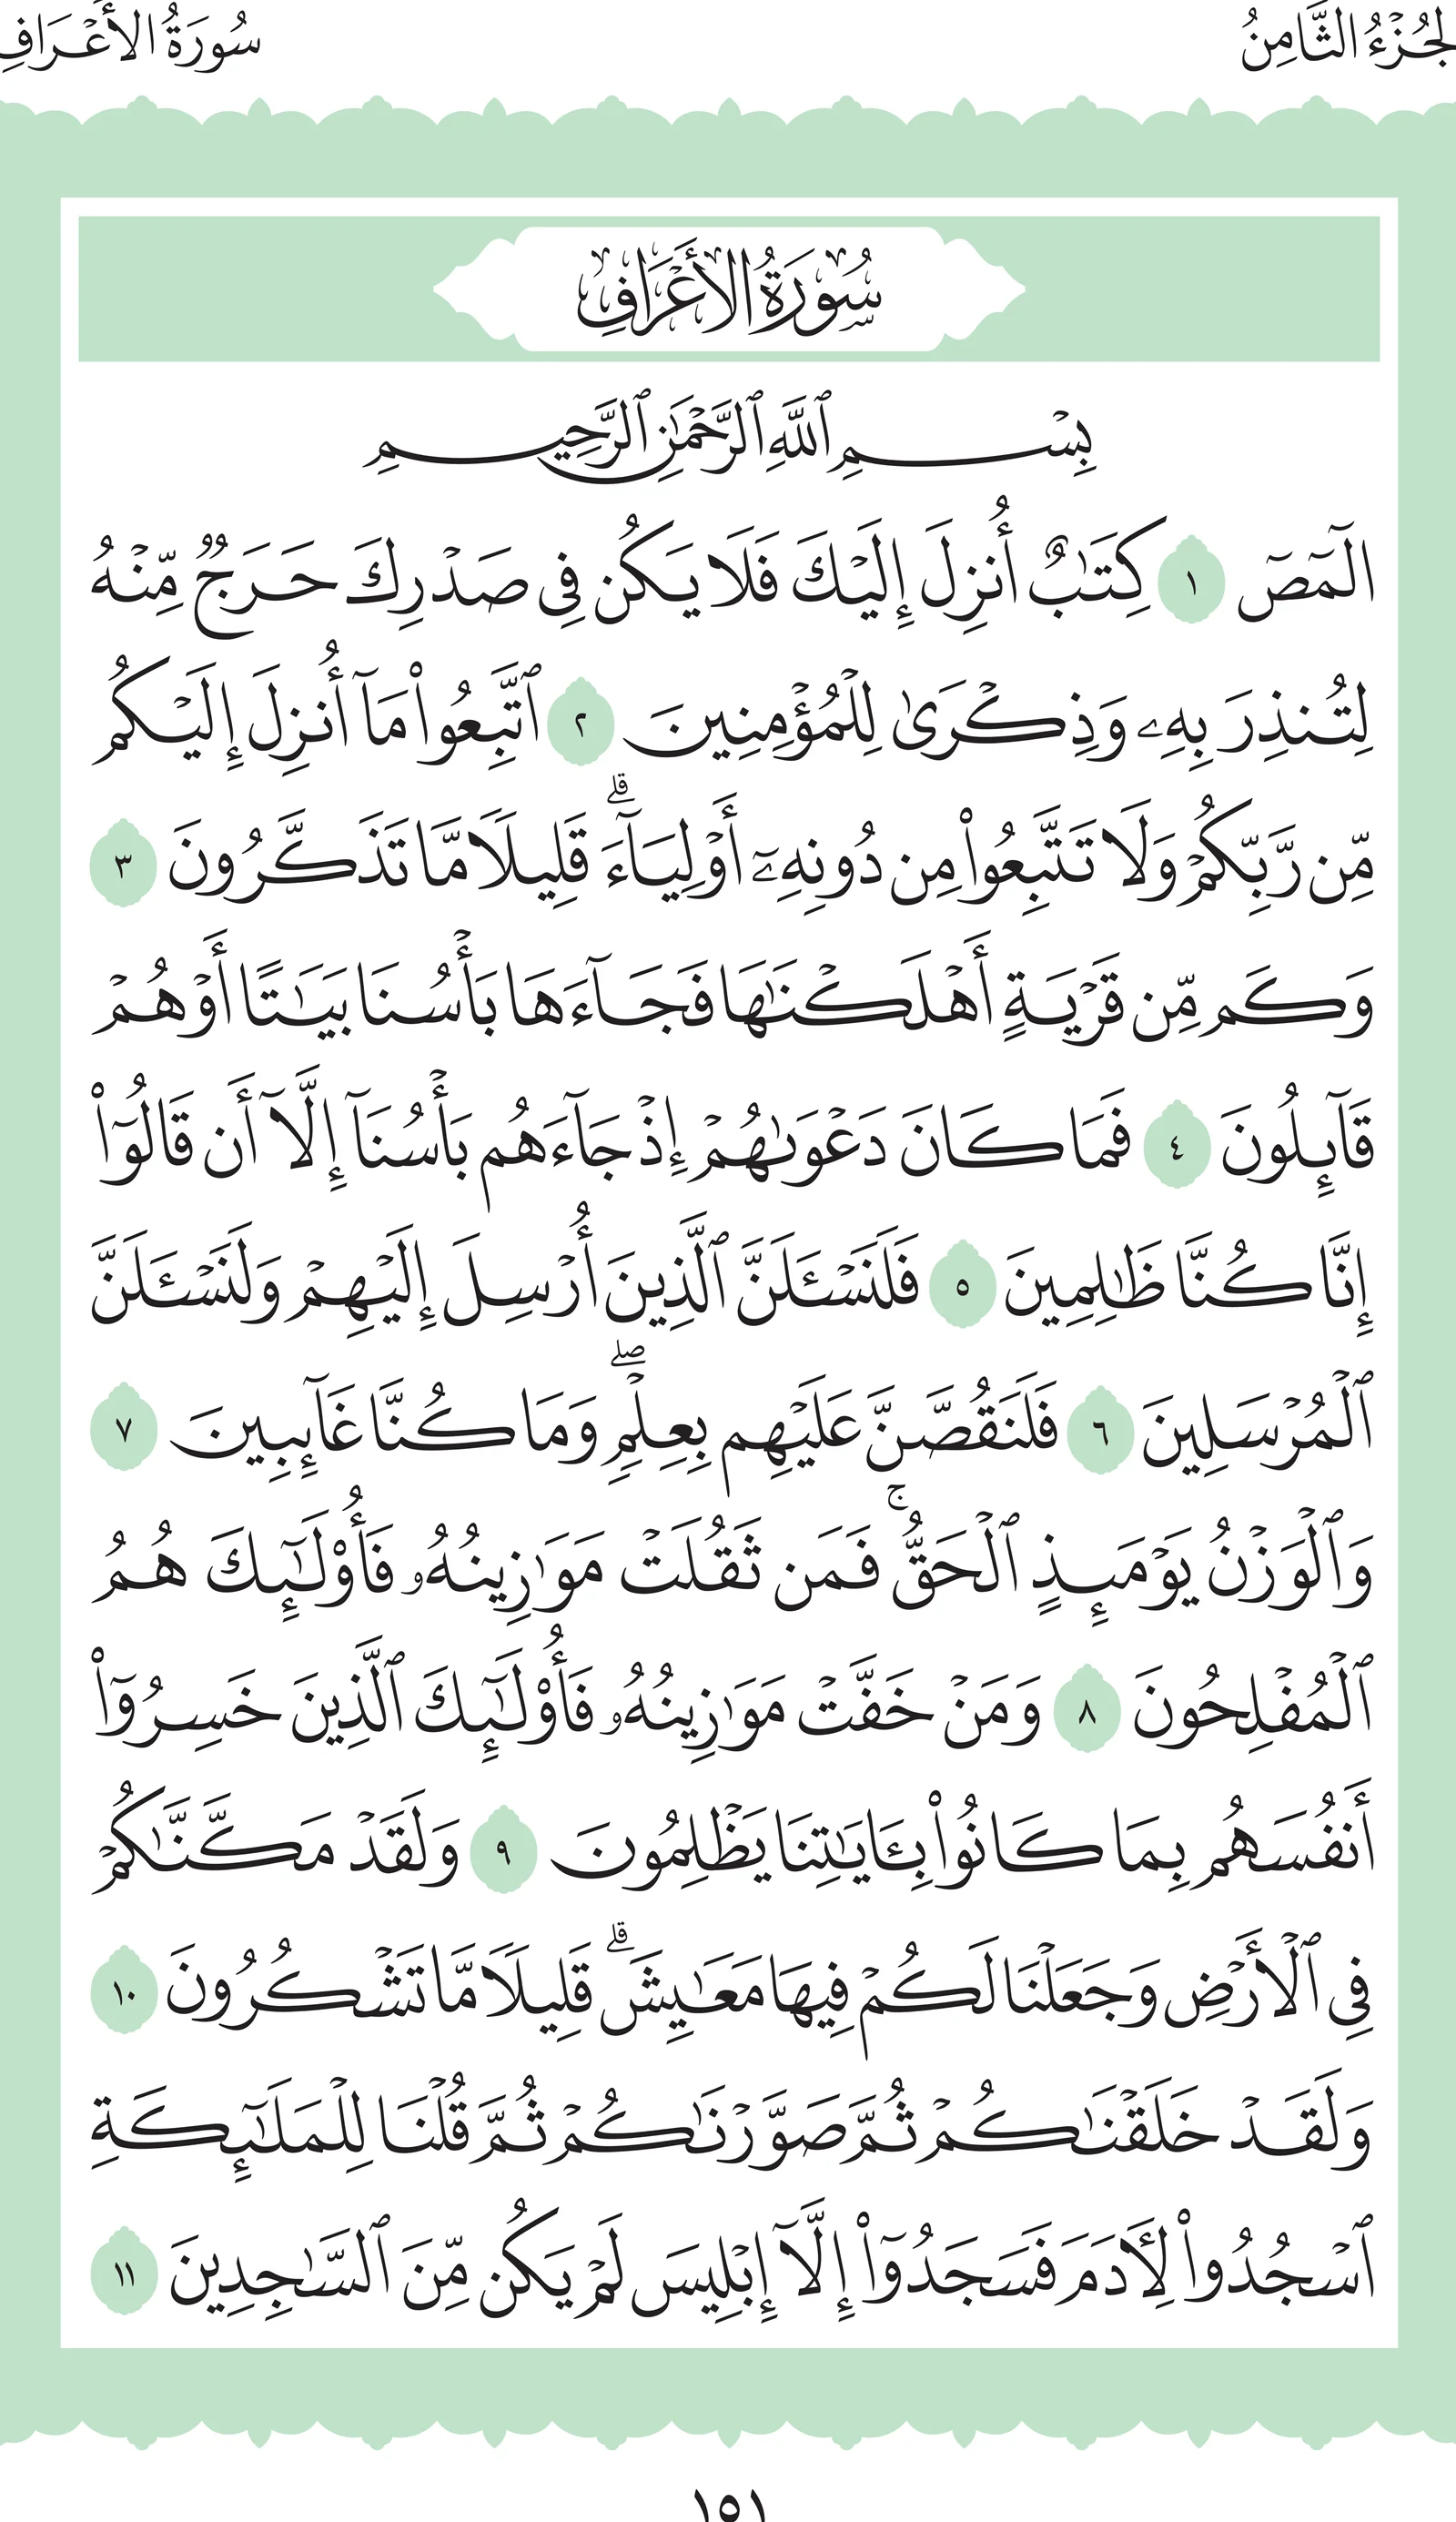 الجُزْءُ الثَّامِنُ
سُورَةُ الأَعْرَافِ
سُورَةُ الأَعْرَافِ
بِسْمِ ٱللَّهِ ٱلرَّحْمَٰنِ ٱلرَّحِيمِ
الٓمٓصٓ ١ كِتَٰبٌ أُنزِلَ إِلَيْكَ فَلَا يَكُن فِى صَدْرِكَ حَرَجٌ مِّنْهُ
لِتُنذِرَ بِهِۦ وَذِكْرَىٰ لِلْمُؤْمِنِينَ ٢ ٱتَّبِعُوا۟ مَآ أُنزِلَ إِلَيْكُم
مِّن رَّبِّكُمْ وَلَا تَتَّبِعُوا۟ مِن دُونِهِۦٓ أَوْلِيَآءَ ۗ قَلِيلًا مَّا تَذَكَّرُونَ ٣
وَكَم مِّن قَرْيَةٍ أَهْلَكْنَٰهَا فَجَآءَهَا بَأْسُنَا بَيَٰتًا أَوْ هُمْ
قَآئِلُونَ ٤ فَمَا كَانَ دَعْوَىٰهُمْ إِذْ جَآءَهُم بَأْسُنَآ إِلَّآ أَن قَالُوٓا۟
إِنَّا كُنَّا ظَٰلِمِينَ ٥ فَلَنَسْـَٔلَنَّ ٱلَّذِينَ أُرْسِلَ إِلَيْهِمْ وَلَنَسْـَٔلَنَّ
ٱلْمُرْسَلِينَ ٦ فَلَنَقُصَّنَّ عَلَيْهِم بِعِلْمٍ ۖ وَمَا كُنَّا غَآئِبِينَ ٧
وَٱلْوَزْنُ يَوْمَئِذٍ ٱلْحَقُّ ۚ فَمَن ثَقُلَتْ مَوَٰزِينُهُۥ فَأُو۟لَٰٓئِكَ هُمُ
ٱلْمُفْلِحُونَ ٨ وَمَنْ خَفَّتْ مَوَٰزِينُهُۥ فَأُو۟لَٰٓئِكَ ٱلَّذِينَ خَسِرُوٓا۟
أَنفُسَهُم بِمَا كَانُوا۟ بِـَٔايَٰتِنَا يَظْلِمُونَ ٩ وَلَقَدْ مَكَّنَّٰكُمْ
فِى ٱلْأَرْضِ وَجَعَلْنَا لَكُمْ فِيهَا مَعَٰيِشَ ۗ قَلِيلًا مَّا تَشْكُرُونَ ١٠
وَلَقَدْ خَلَقْنَٰكُمْ ثُمَّ صَوَّرْنَٰكُمْ ثُمَّ قُلْنَا لِلْمَلَٰٓئِكَةِ
ٱسْجُدُوا۟ لِـَٔادَمَ فَسَجَدُوٓا۟ إِلَّآ إِبْلِيسَ لَمْ يَكُن مِّنَ ٱلسَّٰجِدِينَ ١١
١٥١